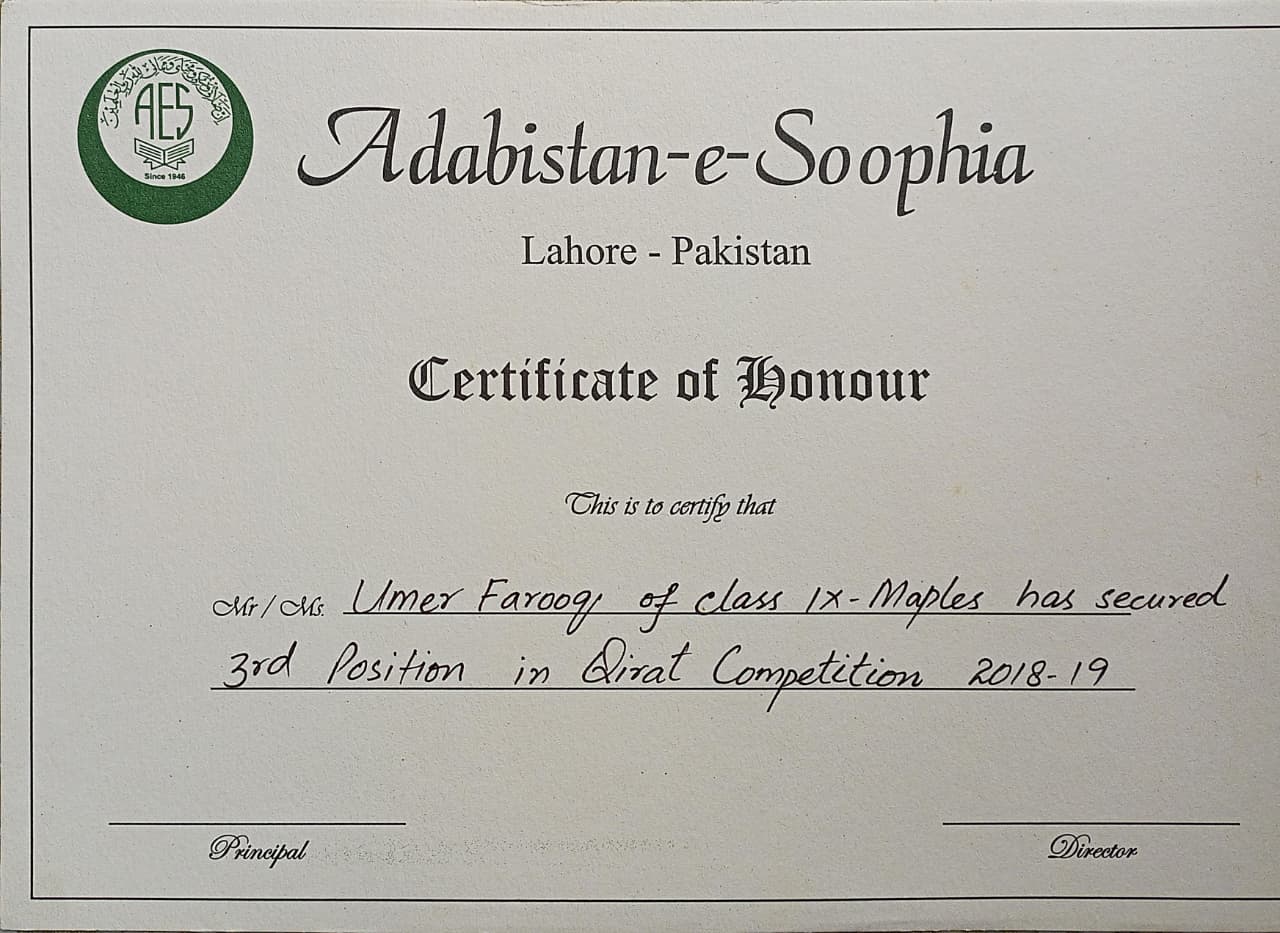 إن صلاتي ونسكي ومحياي ومماتي لله رب العالمين
AES
Since 1946
Adabistan-e-Soophia
Lahore - Pakistan
Certificate of Honour
This is to certify that
Mr / Ms. Umer Farooq of class IX-Maples has secured
3rd Position in Qirat Competition 2018-19
Principal
Director